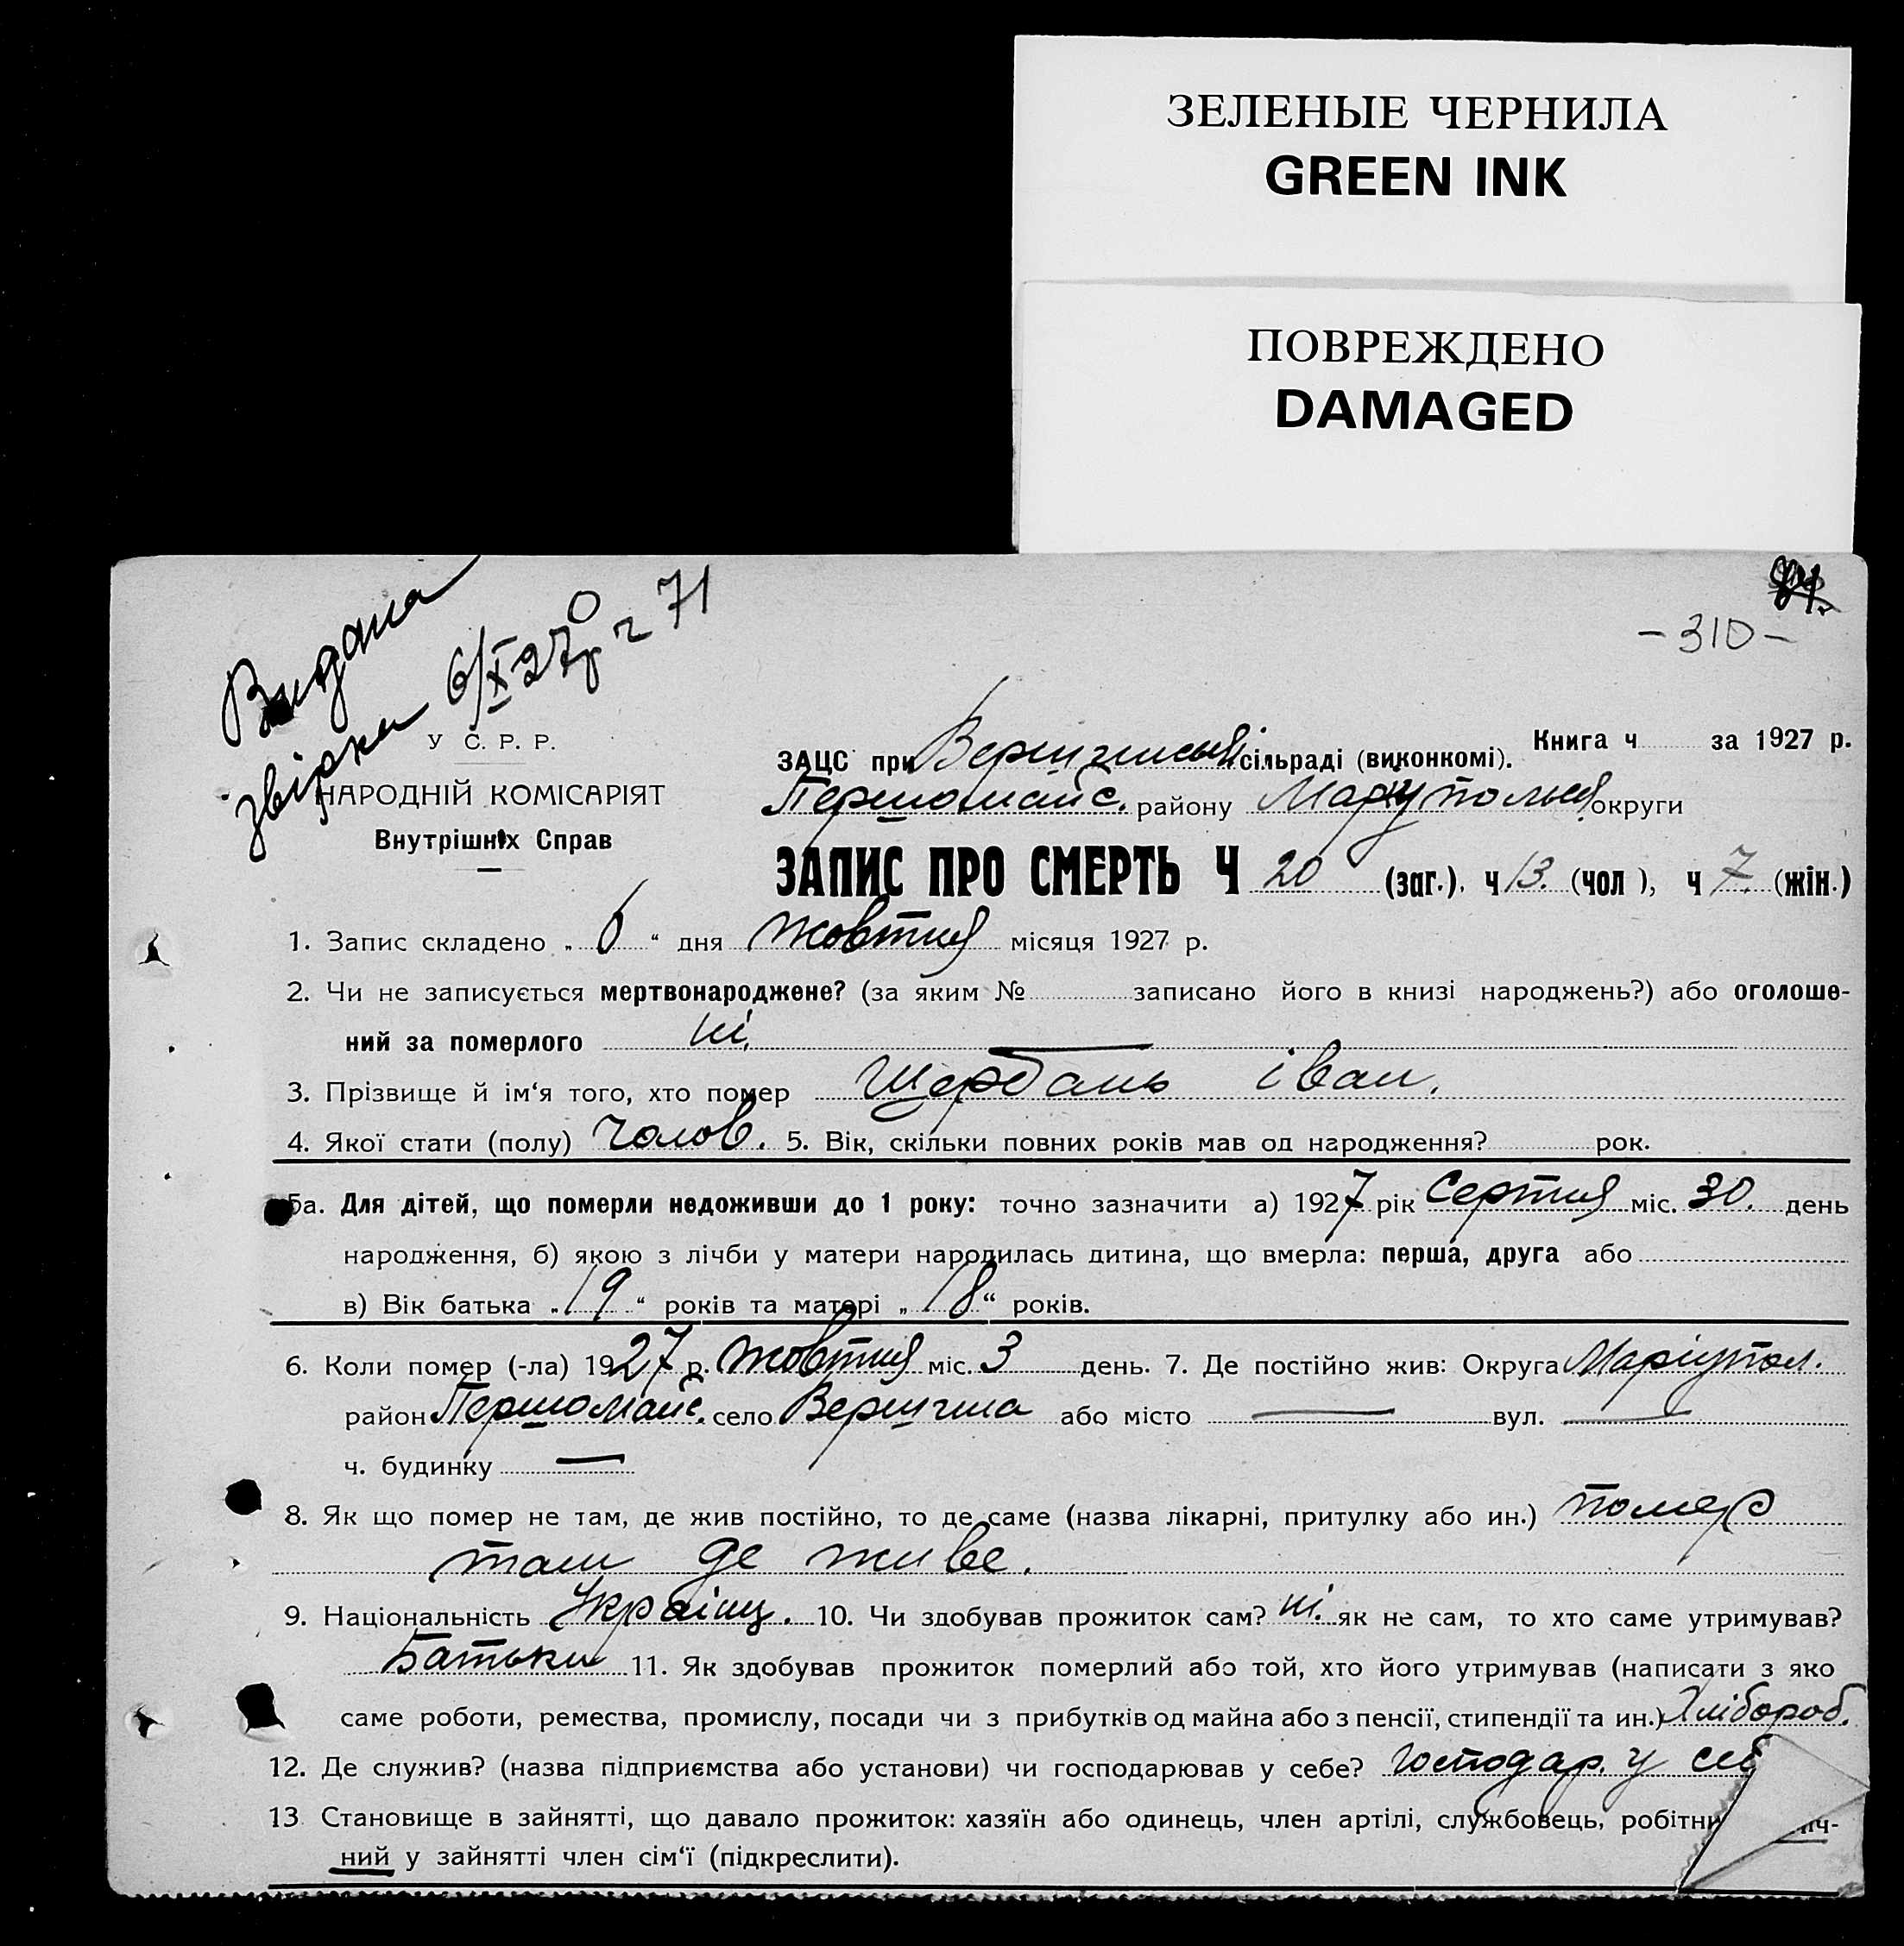 ЗЕЛЕНЫЕ ЧЕРНИЛА
GREEN INK
ПОВРЕЖДЕНО
DAMAGED
-310-
Видана
звірка 6/X 27р ч 71
У С. Р. Р.
НАРОДНІЙ КОМІСАРІЯТ
Внутрішніх Справ
Книга ч за 1927 р.
ЗАЦС при сільраді (виконкомі).
Першомайс. району округи
ЗАПИС ПРО СМЕРТЬ Ч 20 (заг.). ч 13. (чол ), ч 7. (жін.)
1. Запис складено „ 6 “ дня жовтня місяця 1927 р.
2. Чи не записується мертвонароджене? (за яким № записано його в книзі народжень?) або оголоше-
ний за померлого ні.
3. Прізвище й ім‘я того, хто помер Щербань Іван.
4. Якої стати (полу) чолов. 5. Вік, скільки повних років мав од народження? рок.
5а. Для дітей, що померли недоживши до 1 року: точно зазначити а) 1927 рік Серпня міс. 30. день
народження, б) якою з лічби у матери народилась дитина, що вмерла: перша, друга або
в) Вік батька „ 19 “ років та матері „ 18 “ років.
6. Коли помер (-ла) 1927 р. жовтня міс. 3 день. 7. Де постійно жив: Округа Маріупол.
район Першомайс. село Вершина або місто — вул. —
ч. будинку —
8. Як що помер не там, де жив постійно, то де саме (назва лікарні, притулку або ин.) помер
там де живе.
9. Національність Українц. 10. Чи здобував прожиток сам? ні. як не сам, то хто саме утримував?
Батьки 11. Як здобував прожиток померлий або той, хто його утримував (написати з яко
саме роботи, ремества, промислу, посади чи з прибутків од майна або з пенсії, стипендії та ин.) Хлібороб.
12. Де служив? (назва підприємства або установи) чи господарював у себе? Господар. у себ
13 Становище в зайнятті, що давало прожиток: хазяїн або одинець, член артілі, службовець, робітни іч-
ний у зайнятті член сім‘ї (підкреслити).